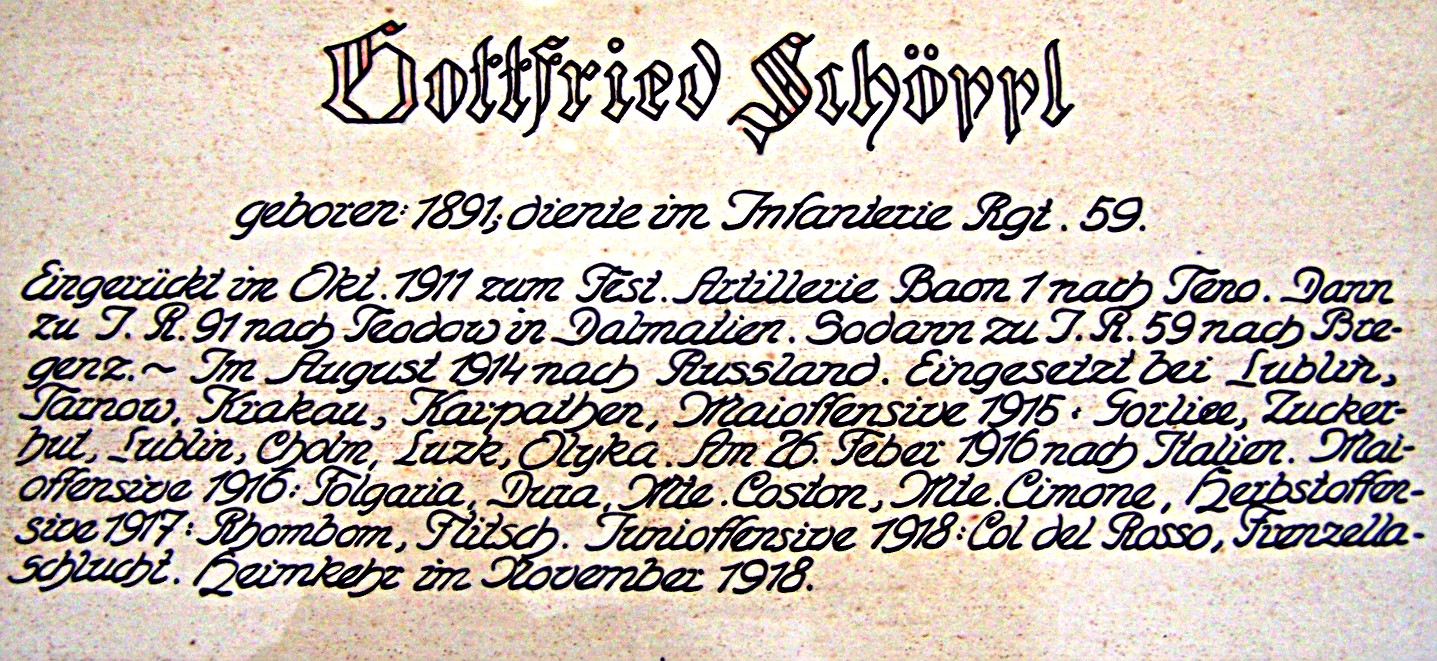 Gottfried Schöppl
geboren: 1891; diente im Infanterie Rgt. 59.
Eingerückt im Okt. 1911 zum Fest. Artillerie Baon 1 nach Teno. Dann
zu I. R. 91 nach Teodow in Dalmatien. Sodann zu I. R. 59 nach Bre-
genz. ~ Im August 1914 nach Russland. Eingesetzt bei Lublin,
Tarnow, Krakau, Karpathen, Maioffensive 1915: Gorlice, Zucker-
hut, Lublin, Cholm, Luzk, Olyka. Am 26. Feber 1916 nach Italien. Mai-
offensive 1916: Folgaria, Dura, Mte. Coston, Mte. Cimone, Herbstoffen-
sive 1917: Rhombom, Flitsch. Junioffensive 1918: Col del Rosso, Frenzella-
schlucht. Heimkehr im November 1918.